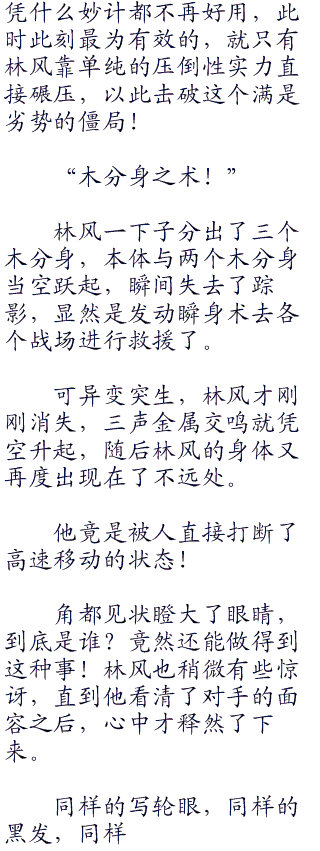 凭什么妙计都不再好用，此
时此刻最为有效的，就只有
林风靠单纯的压倒性实力直
接碾压，以此击破这个满是
劣势的僵局！
“木分身之术！”
林风一下子分出了三个
木分身，本体与两个木分身
当空跃起，瞬间失去了踪
影，显然是发动瞬身术去各
个战场进行救援了。
可异变突生，林风才刚
刚消失，三声金属交鸣就凭
空升起，随后林风的身体又
再度出现在了不远处。
他竟是被人直接打断了
高速移动的状态！
角都见状瞪大了眼睛，
到底是谁？竟然还能做得到
这种事！林风也稍微有些惊
讶，直到他看清了对手的面
容之后，心中才释然了下
来。
同样的写轮眼，同样的
黑发，同样